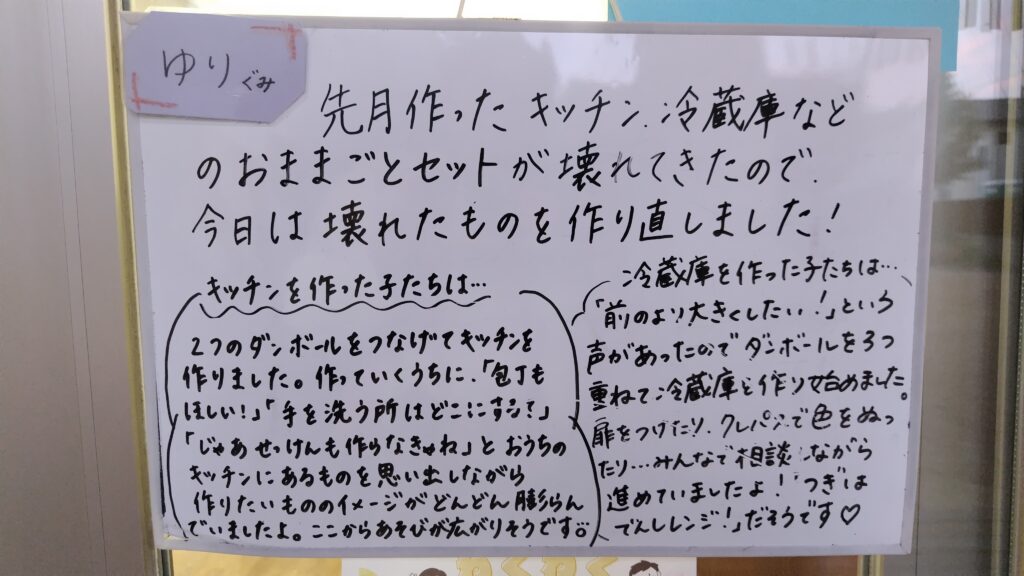 ゆりぐみ
先月作ったキッチン、冷蔵庫など
のおままごとセットが壊れてきたので、
今日は壊れたものを作り直しました!
キッチンを作った子たちは…
2つのダンボールをつなげてキッチンを
作りました。作っていくうちに、「包丁も
ほしい!」「手を洗う所はどこにする?」
「じゃあせっけんも作らなきゃね」とおうちの
キッチンにあるものを思い出しながら
作りたいもののイメージがどんどん膨らん
でいましたよ。ここからあそびが広がりそうです。
冷蔵庫を作った子たちは…
「前のより大きくしたい!」という
声があったのでダンボールを3つ
重ねて冷蔵庫を作り始めました。
扉をつけたり、クレパスで色をぬっ
たり…みんなで相談しながら
進めていましたよ!「つぎは
でんしレンジ!」だそうです♡
わくわく